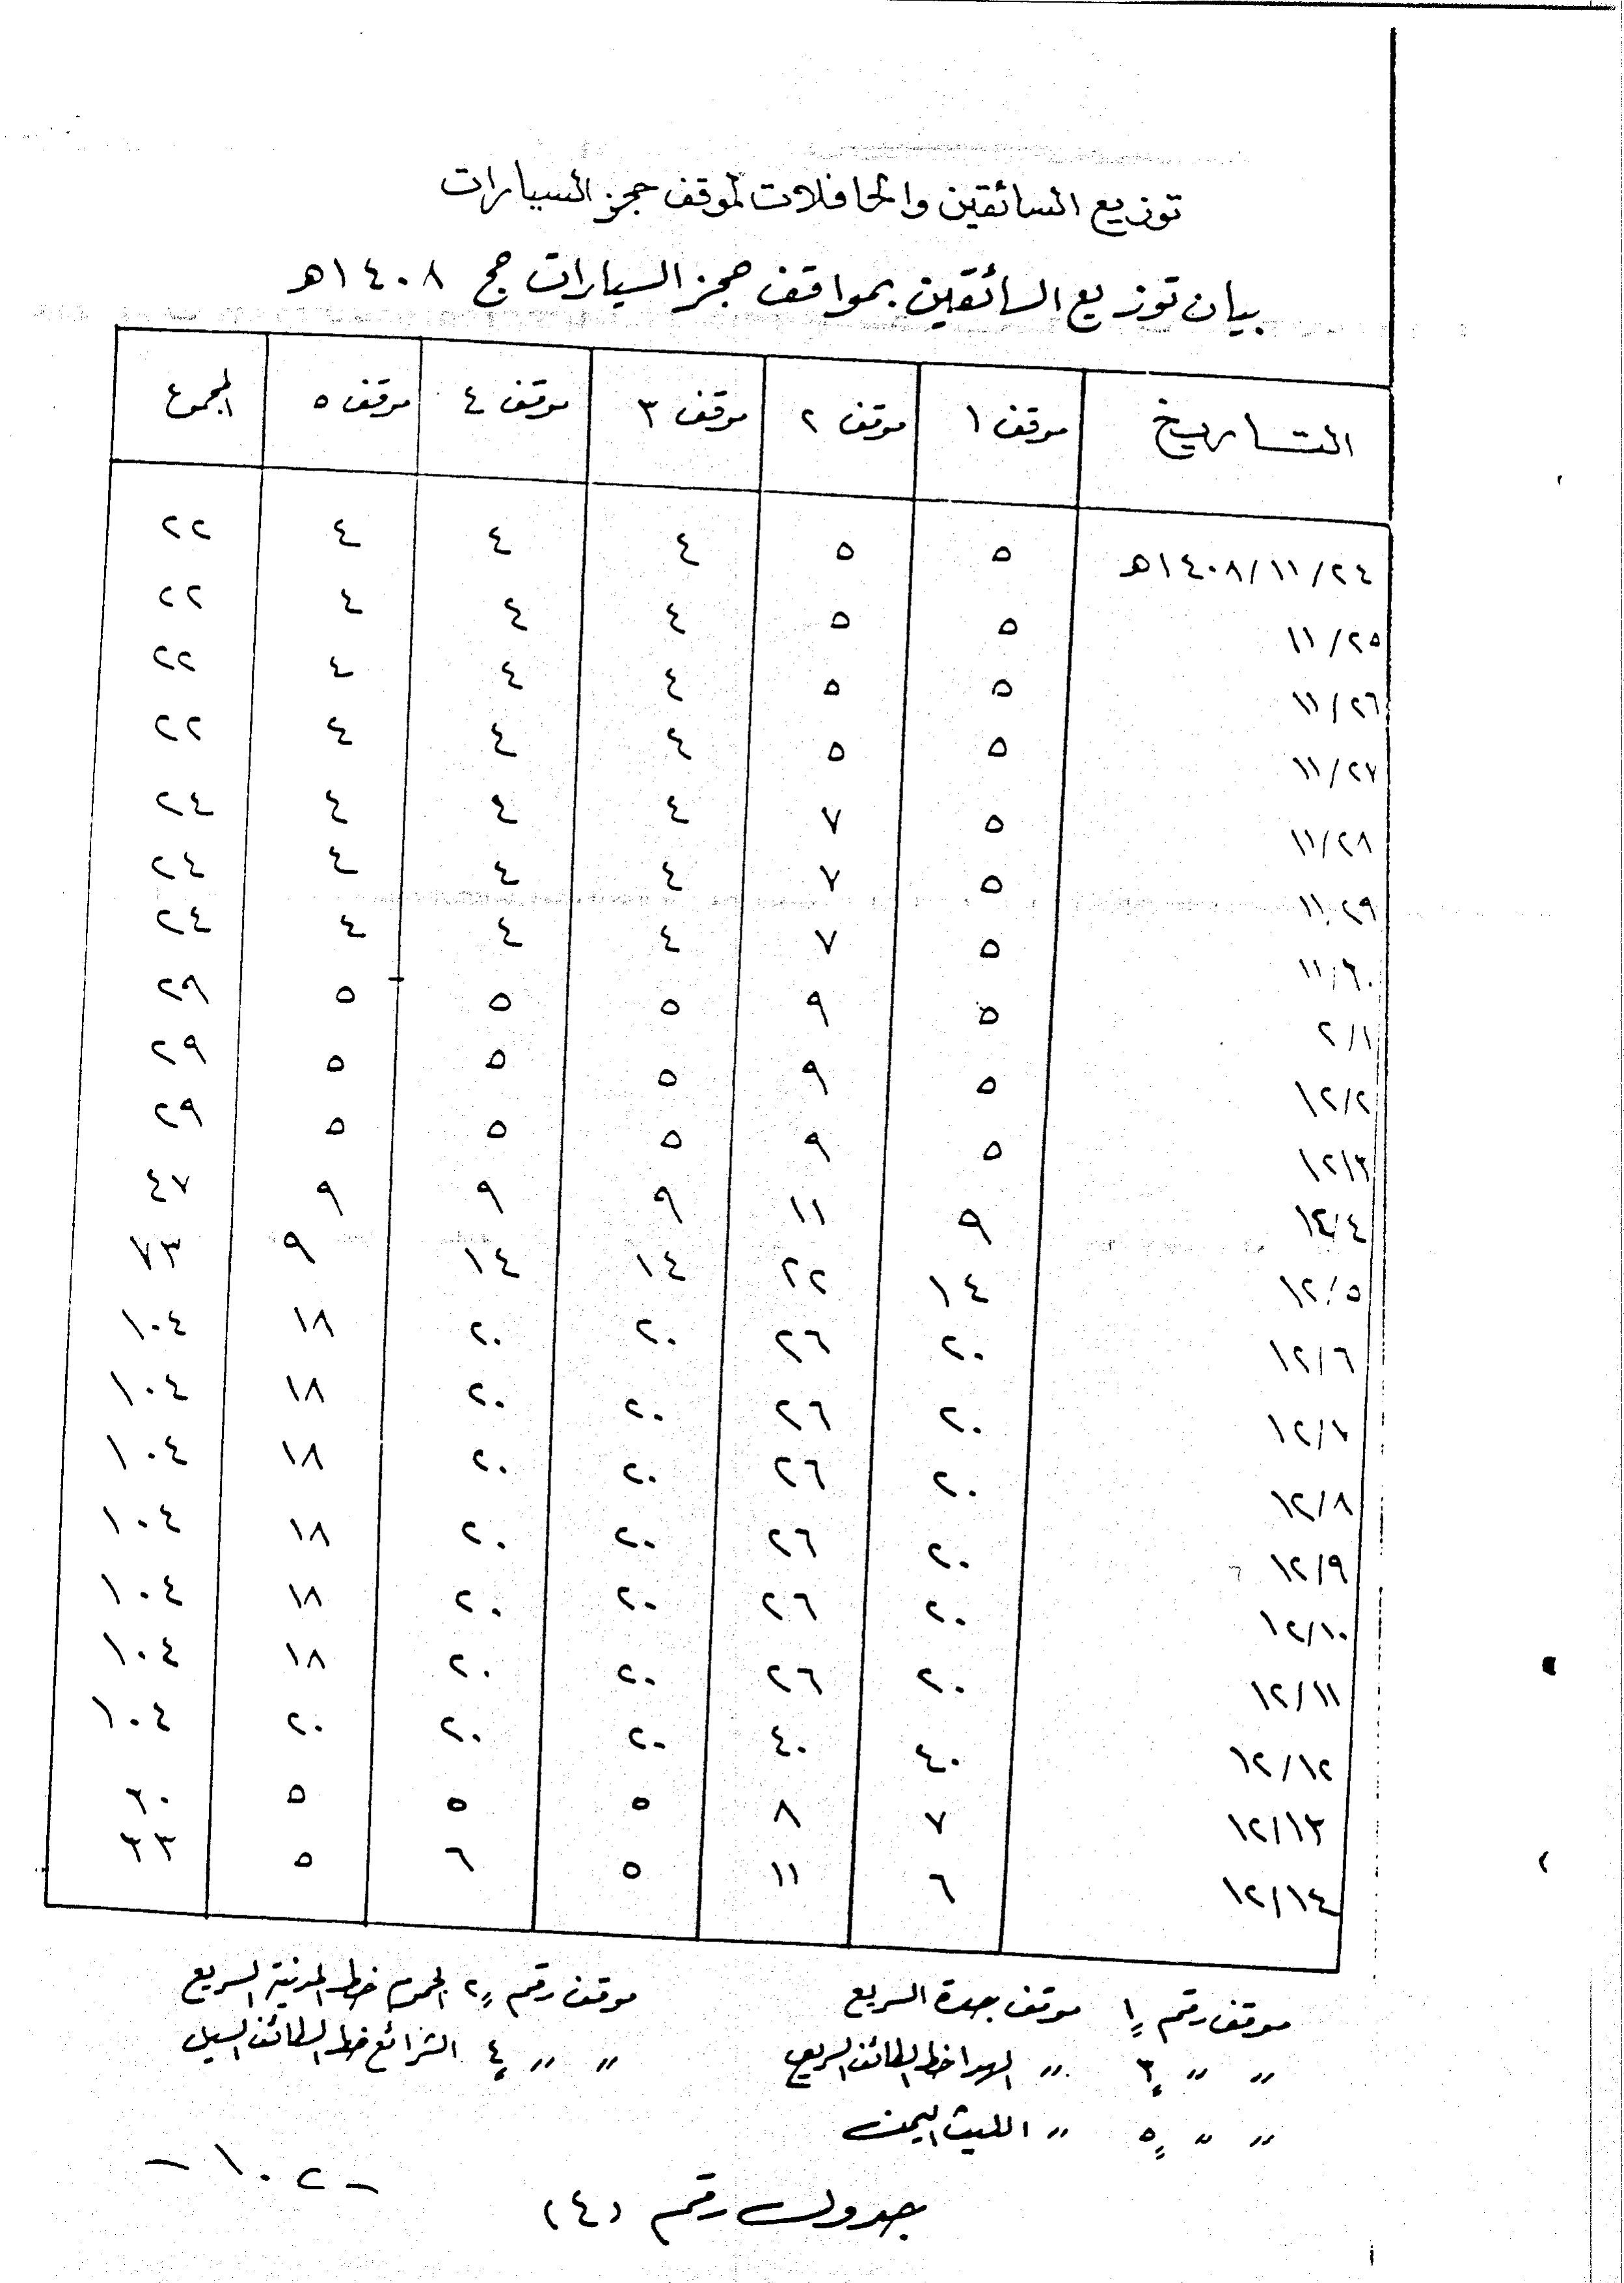 توزيع السائقين والحافلات لموقف حجز السيارات
بيان توزيع السائقين بمواقف حجز السيارات حج ١٤٠٨هـ
التاريخ موقف ١ موقف ٢ موقف ٣ موقف ٤ موقف ٥ المجموع
١٤٠٨/١١/٢٤هـ ٥ ٥ ٤ ٤ ٤ ٢٢
١١/٢٥ ٥ ٥ ٤ ٤ ٤ ٢٢
١١/٢٦ ٥ ٥ ٤ ٤ ٤ ٢٢
١١/٢٧ ٥ ٥ ٤ ٤ ٤ ٢٢
١١/٢٨ ٥ ٧ ٤ ٤ ٤ ٢٤
١١/٢٩ ٥ ٧ ٤ ٤ ٤ ٢٤
١١/٣٠ ٥ ٧ ٤ ٤ ٤ ٢٤
٢/١ ٥ ٩ ٥ ٥ ٥ ٢٩
١٢/٢ ٥ ٩ ٥ ٥ ٥ ٢٩
١٢/٣ ٥ ٩ ٥ ٥ ٥ ٢٩
١٢/٤ ٩ ١١ ٩ ٩ ٩ ٤٧
١٢/٥ ١٤ ٢٢ ١٤ ١٤ ٩ ٧٣
١٢/٦ ٢٠ ٢٦ ٢٠ ٢٠ ١٨ ١٠٤
١٢/٧ ٢٠ ٢٦ ٢٠ ٢٠ ١٨ ١٠٤
١٢/٨ ٢٠ ٢٦ ٢٠ ٢٠ ١٨ ١٠٤
١٢/٩ ٢٠ ٢٦ ٢٠ ٢٠ ١٨ ١٠٤
١٢/١٠ ٢٠ ٢٦ ٢٠ ٢٠ ١٨ ١٠٤
١٢/١١ ٢٠ ٢٦ ٢٠ ٢٠ ١٨ ١٠٤
١٢/١٢ ٤٠ ٤٠ ٢٠ ٢٠ ٢٠ ١٠٤
١٢/١٣ ٧ ٨ ٥ ٥ ٥ ٣٠
١٢/١٤ ٦ ١١ ٥ ٦ ٥ ٣٣
موقف رقم ١ موقف جدة السريع موقف رقم ٢ الجموم خط المدينة السريع
〃 〃 ٣ 〃 الهدا خط الطائف السريع 〃 〃 ٤ الشرائع خط الطائف السيل
〃 〃 ٥ 〃 الليث اليمن
- ١٠٢ -
جدول رقم (٤)